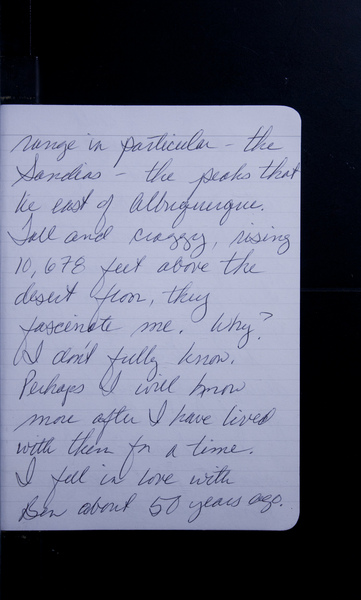 range in particular - the
Sandias - the peaks that
lie east of Albuquerque.
Tall and craggy, rising
10,678 feet above the
desert floor, they
fascinate me. Why?
I don't fully know.
Perhaps I will know
more after I have lived
with them for a time.
I fell in love with
Ben about 50 years ago.